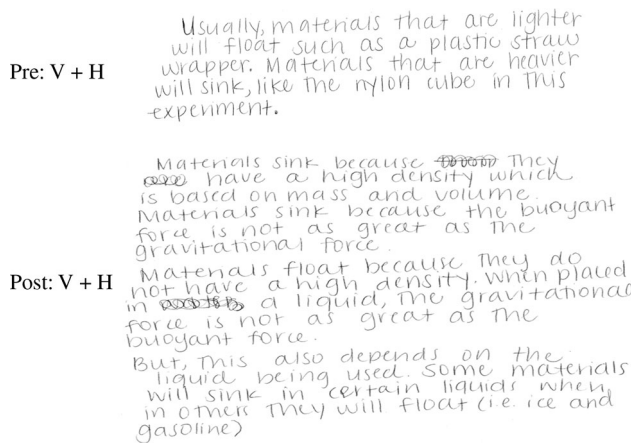 Usually, materials that are lighter
will float such as a plastic straw
Pre: V + H
wrapper. Materials that are heavier
will sink, like the nylon cube in this
experiment.
Materials sink because They
have a high density which
is based on mass and volume.
Materials sink because the buoyant
force is not as great as the
gravitational force.
Post: V + H
Materials float because They do
not have a high density. When placed
in a liquid, The gravitational
force is not as great as the
buoyant force.
But, This also depends on the
liquid being used. Some materials
will sink in certain liquids when
in others They will float (i.e. ice and
gasoline)